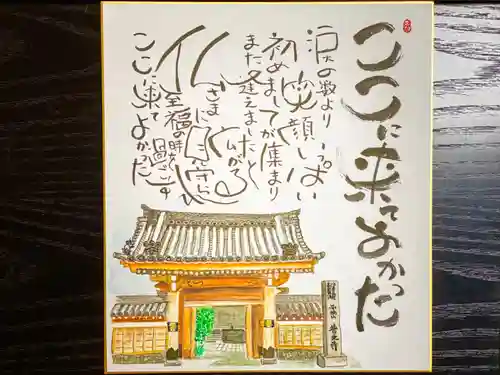 ここに来てよかった
涙の数より
笑顔いっぱい
初めましてが集まり
また逢えましたと
つながる
仏さまに見守られ
至福の時を過ごす
ここに来て
よかった